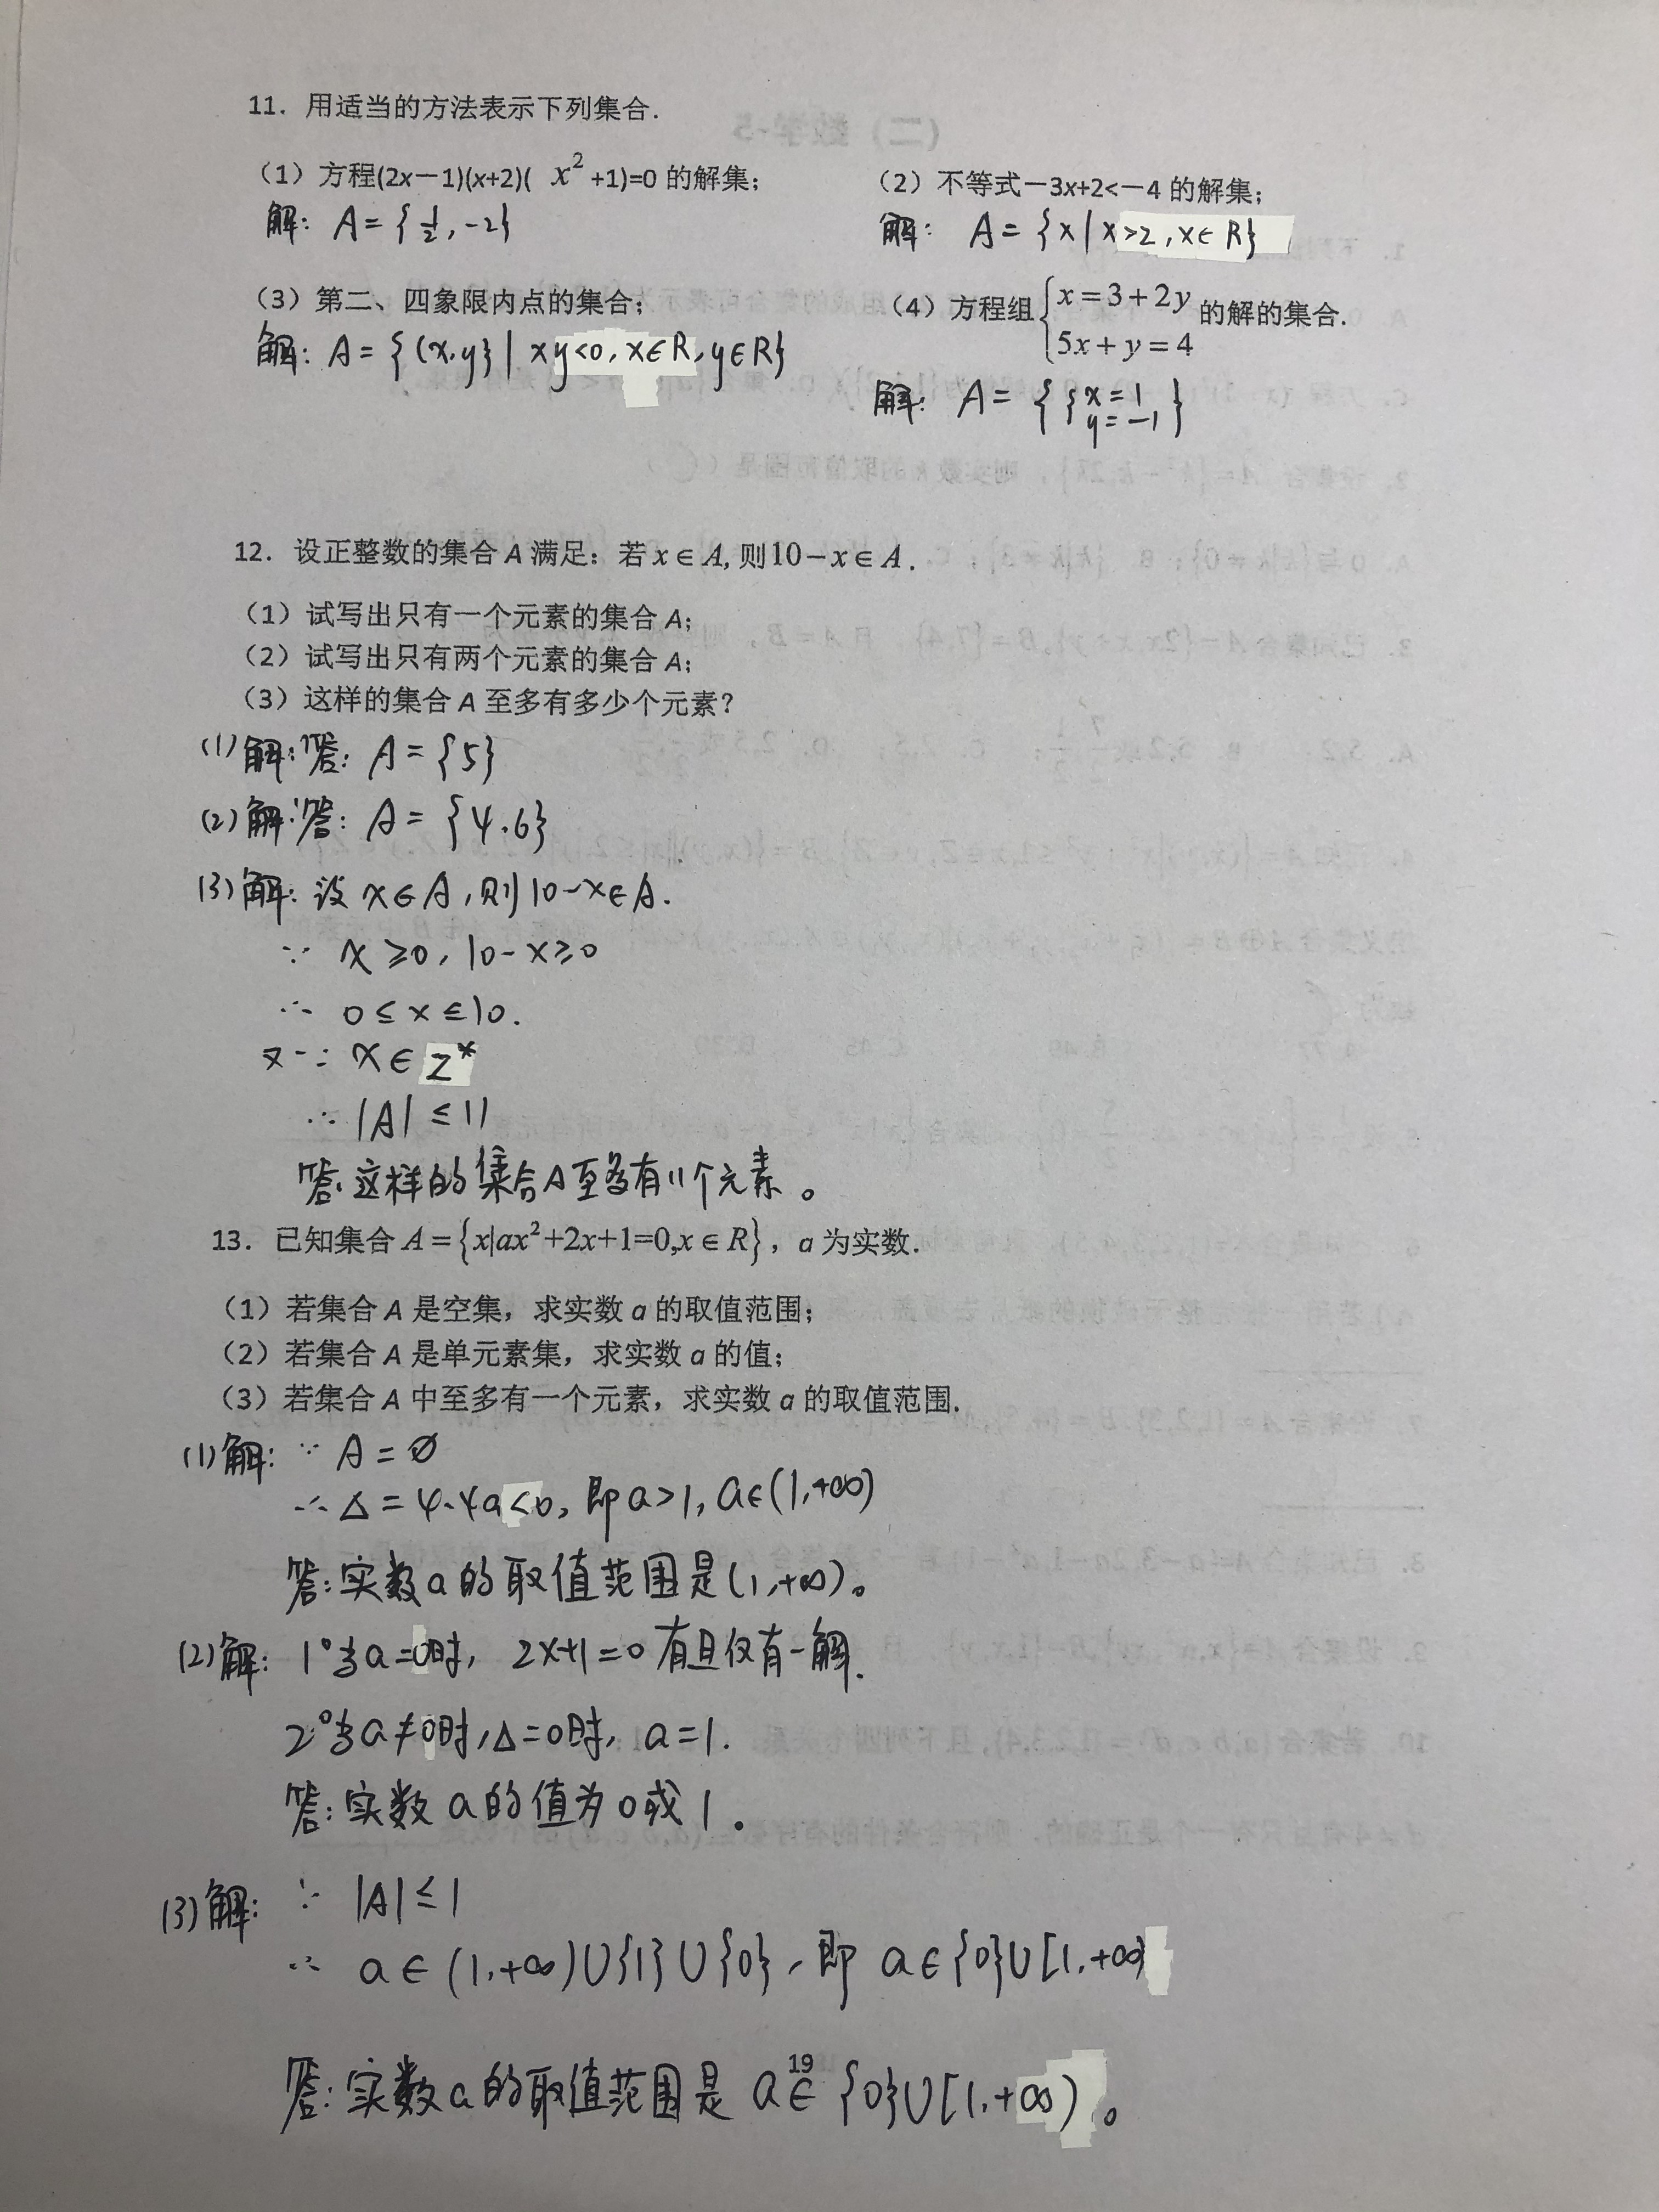 11. 用适当的方法表示下列集合.
(1) 方程(2x－1)(x+2)( x² +1)=0 的解集;
(2) 不等式－3x+2<－4 的解集;
解: A={½,-2}
解: A={x|x>2,x∈R}
(3) 第二、四象限内点的集合;
(4) 方程组{x=3+2y 5x+y=4 的解的集合.
解: A={(x,y}|xy<0,x∈R,y∈R}
解: A={{x=1 y=-1}
12. 设正整数的集合 A 满足: 若 x∈A, 则10－x∈A.
(1) 试写出只有一个元素的集合 A;
(2) 试写出只有两个元素的集合 A;
(3) 这样的集合 A 至多有多少个元素?
(1)解:答: A={5}
(2)解:答: A={4.6}
(3)解: 设 x∈A,则10-x∈A.
∵ x≥0, 10-x≥0
∴ 0≤x≤10.
又∵ x∈Z*
∴ |A|≤11
答:这样的集合A至多有11个元素。
13. 已知集合 A={x|ax²+2x+1=0,x∈R}, a 为实数.
(1) 若集合 A 是空集, 求实数 a 的取值范围;
(2) 若集合 A 是单元素集, 求实数 a 的值;
(3) 若集合 A 中至多有一个元素, 求实数 a 的取值范围.
(1)解: ∵ A=∅
∴ Δ=4-4a<0, 即a>1, a∈(1,+∞)
答:实数a的取值范围是(1,+∞)。
(2)解: 1°当a=0时, 2x+1=0有且仅有一解.
2°当a≠0时,Δ=0时, a=1.
答:实数a的值为0或1。
(3)解: ∵ |A|≤1
∴ a∈(1,+∞)∪{1}∪{0}, 即 a∈{0}∪[1,+∞)
19
答:实数a的取值范围是 a∈{0}∪[1,+∞)。